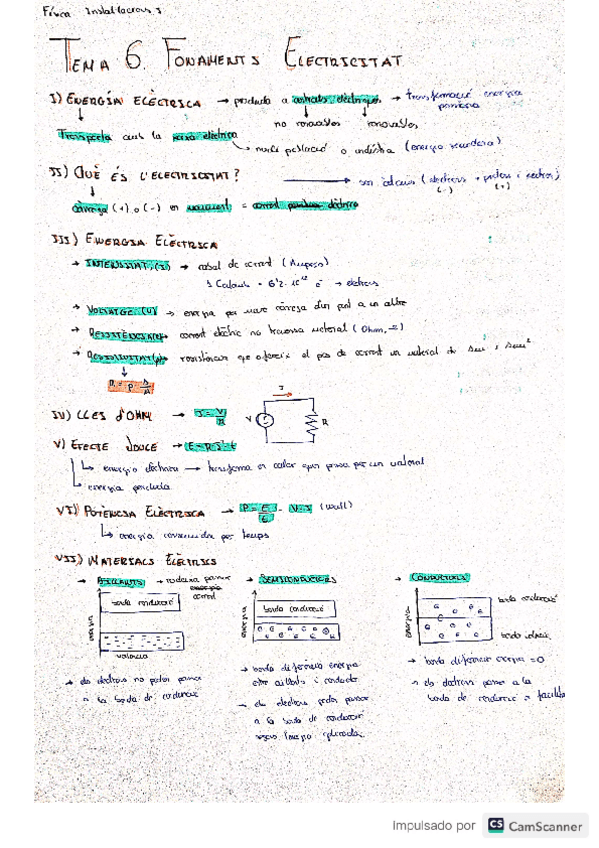 Física Instal·lacions 1
TEMA 6. FONAMENTS ELECTRICITAT
I) ENERGÍA ELÈCTRICA → produida a centrals elèctriques → transformació energia
no renovables renovables
Transporta amb la xarxa elèctrica
nucli població o indústria (energia secundaria)
II) QUÈ ÉS L'ELECTRICITAT?
(-) (+)
càrrega (+) o (-) en moviment = corrent elèctric
III) ENERGIA ELÈCTRICA
→ INTENSITAT (I) → cabal de corrent (Ampers)
1 Coulomb = 6'2·10 e⁻ → electrons
→ VOLTATGE (U) → energia per moure càrrega d'un pol a un altre
→ corrent elèctric no travessa material (Ohm, Ω)
→ resistència que ofereix el pas de corrent un material de 1m i 1mm²
IV) LLEI D'OHM → I = V/R
I
V
R
V) EFECTE JOULE → E = R·I²·t
energia elèctrica → transforma en calor quan passa per un material
energia perduda
VI) POTÈNCIA ELÈCTRICA → P = E/t = V·I (Watt)
energia consumida per temps
VII) MATERIALS ELÈCTRICS
→ AÏLLANTS → → SEMICONDUCTORS → CONDUCTORS
corrent
banda conducció banda conducció banda conducció
energia energia energia
valencia banda valència
→ els electrons no poden passar
a la banda de conducció
→ banda diferència energia
entre aïllants i conductor
→ els electrons poden passar
a la banda de conducció
segons l'energia aplicada
→ banda diferència energia = 0
→ els electrons passen a la
banda de conducció + facilitat
Impulsado por CS CamScanner